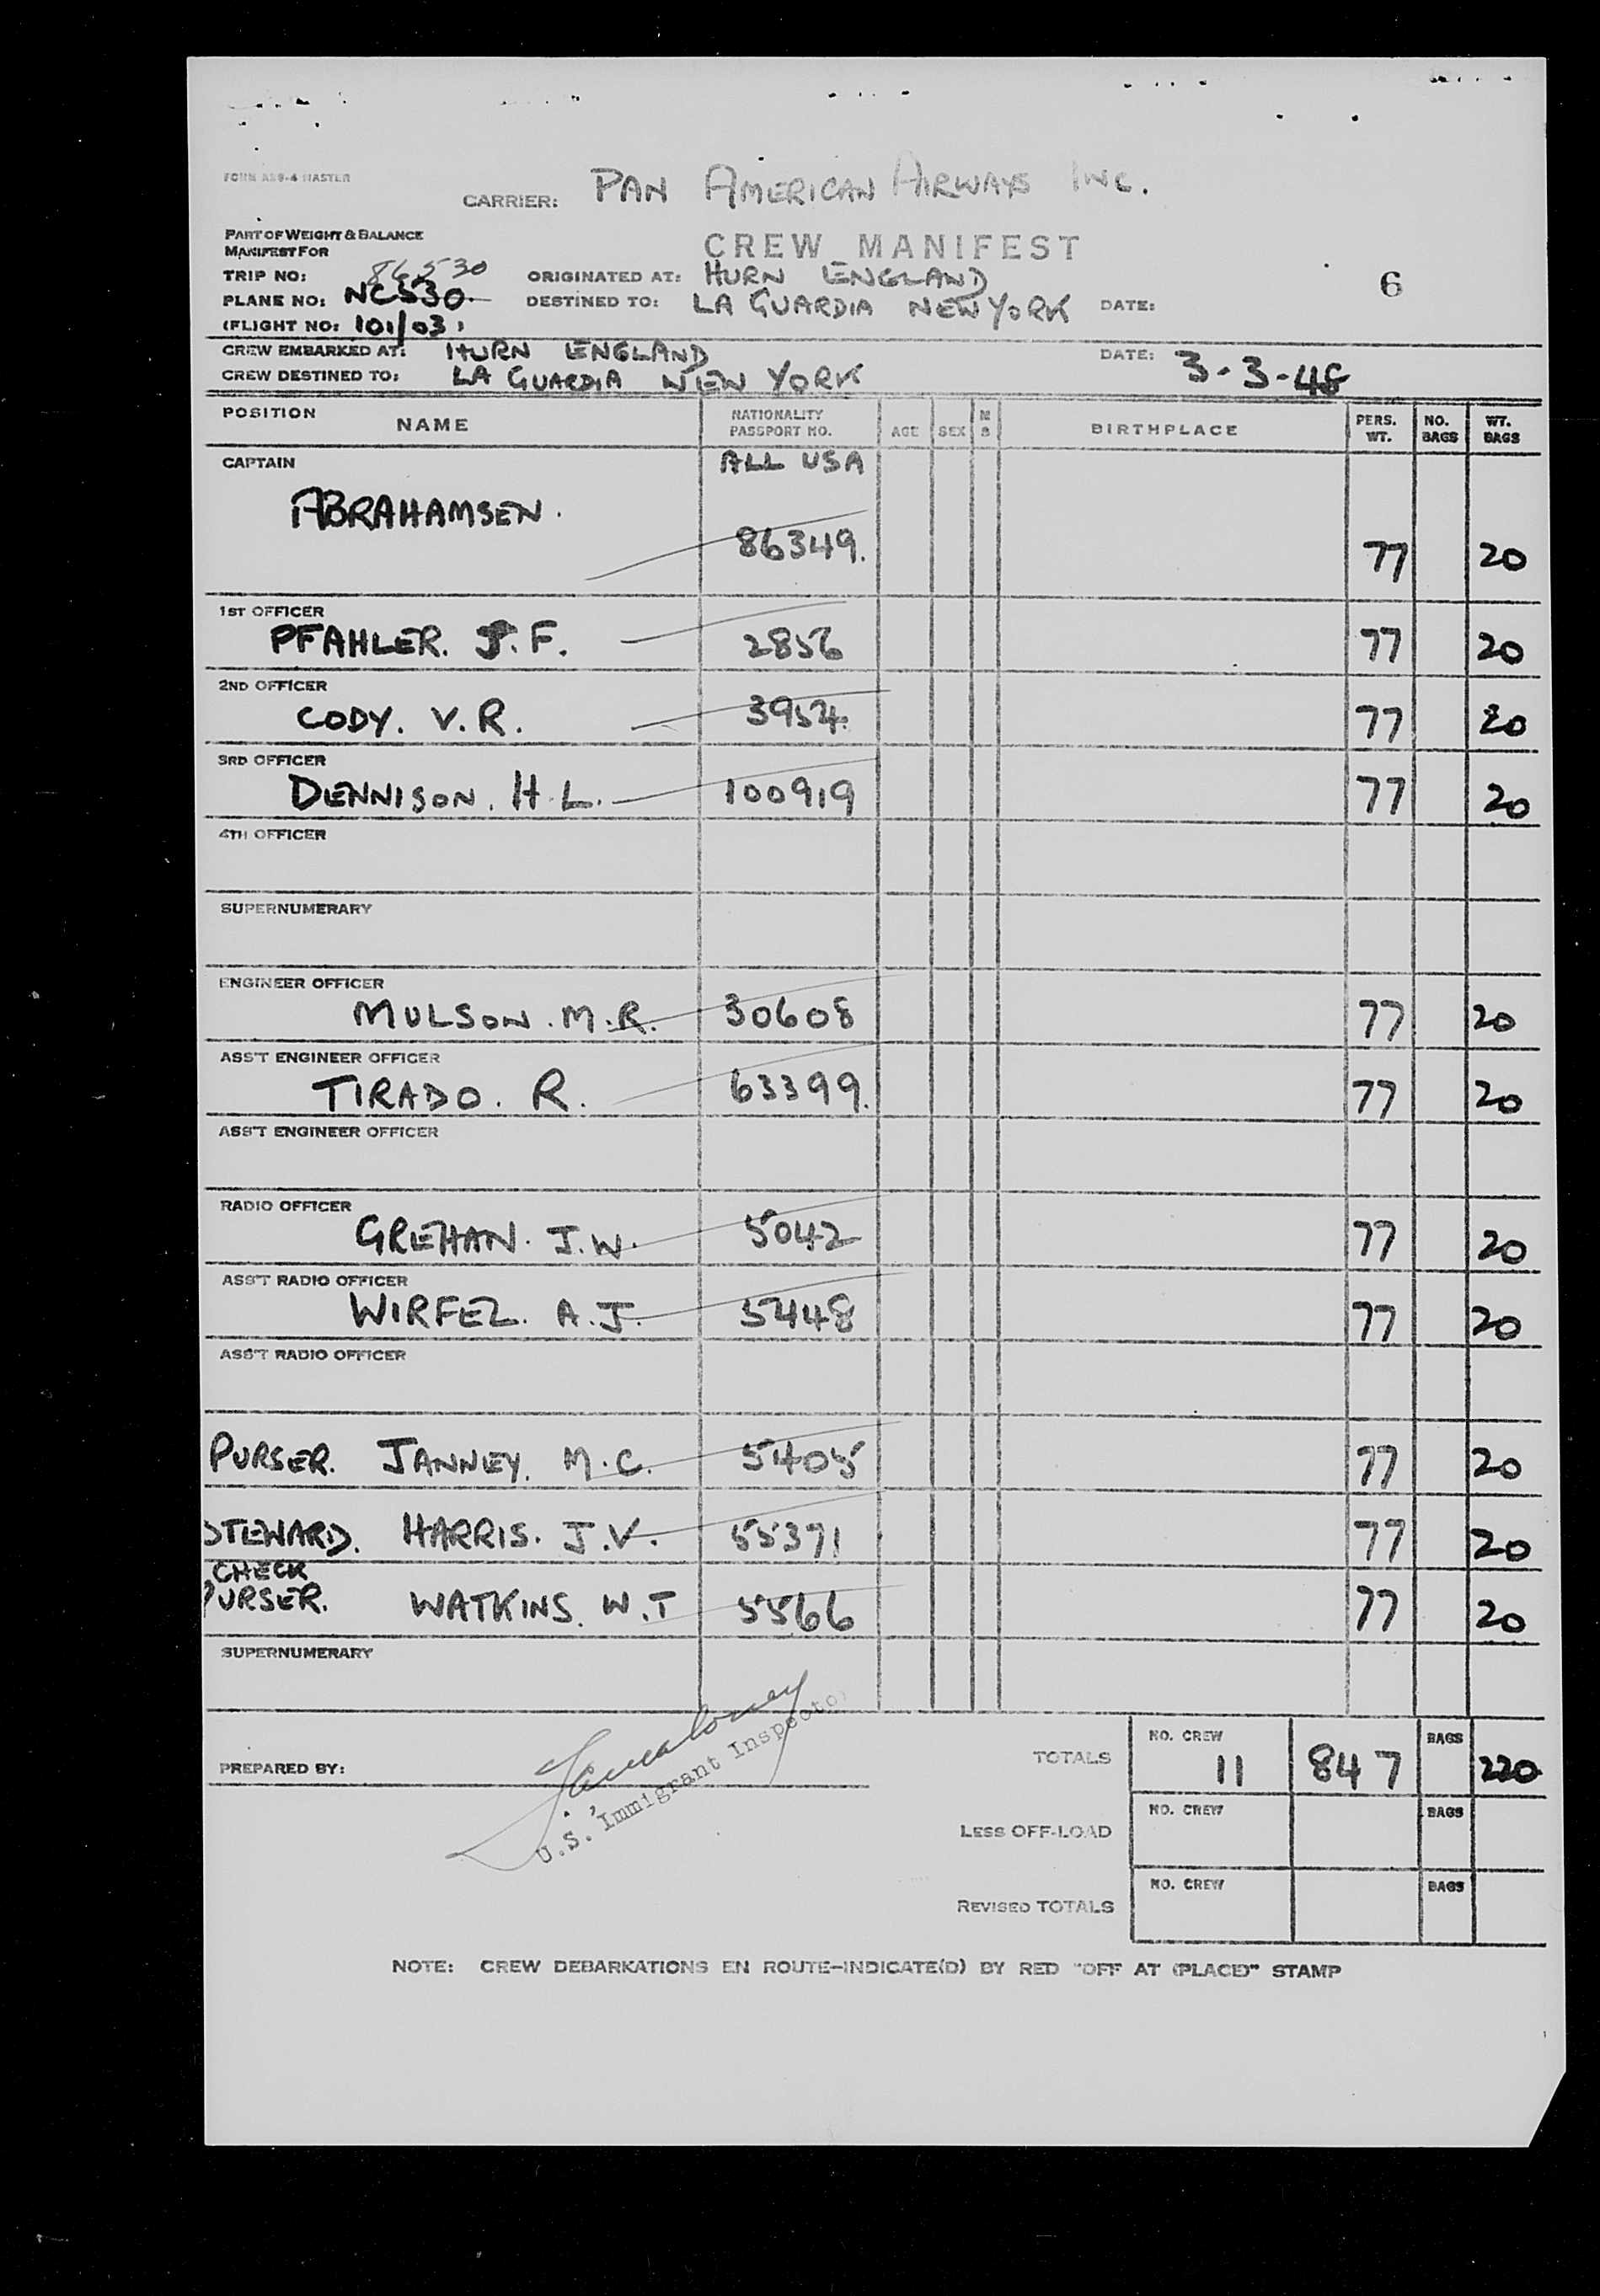 FORM ASS-4 MASTER
CARRIER: PAN AMERICAN AIRWAYS INC.
PART OF WEIGHT & BALANCE
MANIFEST FOR
CREW MANIFEST
TRIP NO: 86530 ORIGINATED AT: HURN ENGLAND
PLANE NO: NC530 DESTINED TO: LA GUARDIA NEW YORK DATE: 6
(FLIGHT NO: 101/03)
CREW EMBARKED AT: HURN ENGLAND DATE: 3-3-48
CREW DESTINED TO: LA GUARDIA NEW YORK
POSITION NAME NATIONALITY PASSPORT NO. AGE SEX M S BIRTHPLACE PERS. WT. NO. BAGS WT. BAGS
CAPTAIN ALL USA
ABRAHAMSEN. 86349. 77 20
1ST OFFICER
PFAHLER. J.F. 2856 77 20
2ND OFFICER
CODY. V.R. 3954. 77 20
3RD OFFICER
DENNISON. H.L. 100919 77 20
4TH OFFICER
SUPERNUMERARY
ENGINEER OFFICER
MULSON. M.R. 30608 77 20
ASS'T ENGINEER OFFICER
TIRADO. R. 63399. 77 20
ASS'T ENGINEER OFFICER
RADIO OFFICER
GREHAN. J.W. 5042 77 20
ASS'T RADIO OFFICER
WIRFEZ. A.J. 5448 77 20
ASS'T RADIO OFFICER
PURSER. JANNEY. M.C. 5405 77 20
STEWARD. HARRIS. J.V. 55371 77 20
CHECK
PURSER. WATKINS. W.T 5566 77 20
SUPERNUMERARY
PREPARED BY:
U.S. Immigrant Inspector
TOTALS NO. CREW 11 847 BAGS 220
LESS OFF-LOAD NO. CREW BAGS
REVISED TOTALS NO. CREW BAGS
NOTE: CREW DEBARKATIONS EN ROUTE-INDICATE(D) BY RED "OFF AT (PLACE)" STAMP